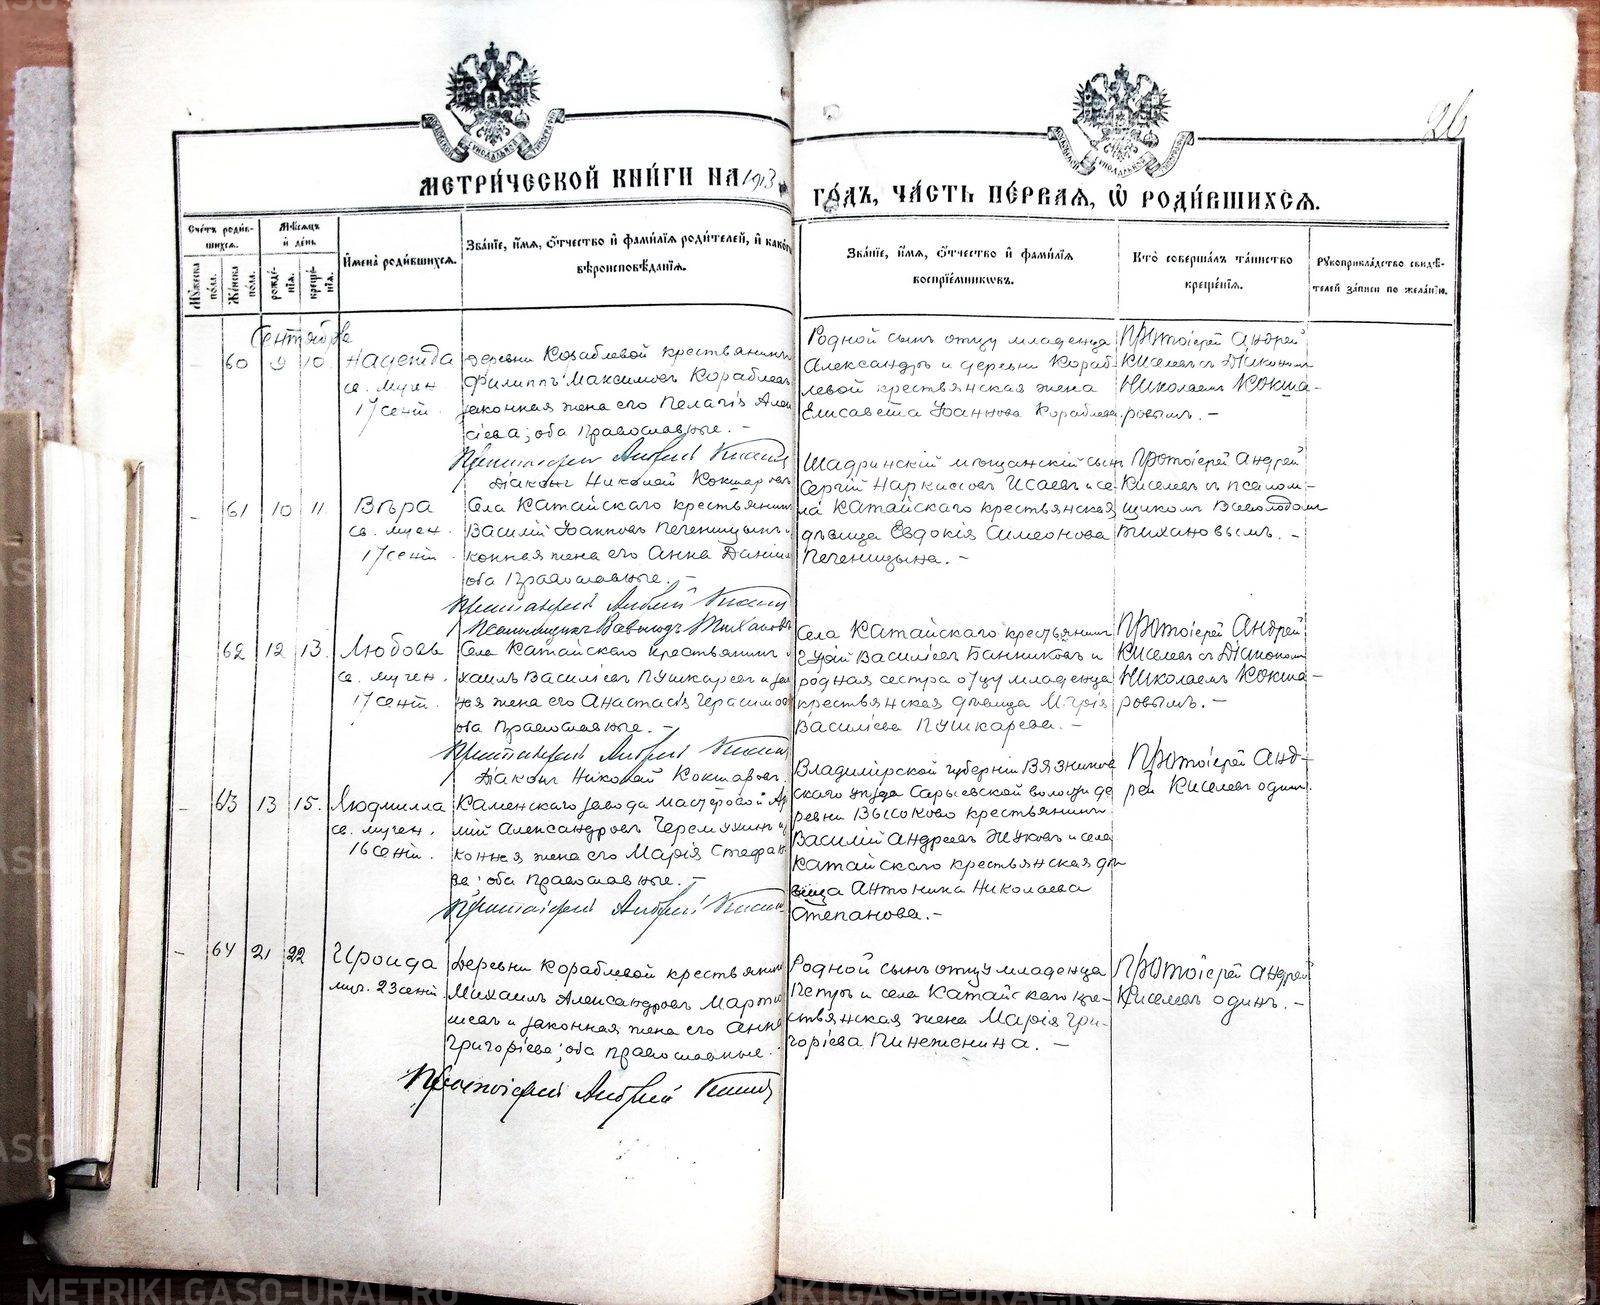 26
МЕТРИ́ЧЕСКОЙ КНИ́ГИ НА 1913
ГО́ДЪ, ЧА́СТЬ ПЕ́РВАЯ, Ѡ РОДИ́ВШИХСЯ.
Сче́тъ роди́в-
шихся.
Мѣ́сяцъ
и҆ де́нь
Мꙋ́жеска по́ла.
Же́нска по́ла.
рожде́-
нїя.
креще́-
нїя.
И҆мена̀ роди́вшихся.
Зва́нїе, и҆́мя, ѻ҆́тчество и҆ фами́лїя роди́телей, и҆ како́гѡ
вѣроисповѣ́данїя.
Зва́нїе, и҆́мя, ѻ҆́тчество и҆ фами́лїя
воспрїе́мникѡвъ.
Кто̀ соверша́лъ та́инство
креще́нїя.
Рꙋкоприкла́дство свидѣ́-
телей за́писи по жела́нїю.
Сентябрь
- 60 9 10 Надежда
св. мучен
17 сент.
деревни Кораблевой крестьянинъ
Филиппъ Максимовъ Кораблевъ
законная жена его Пелагія Алек
сіева; оба православные. -
Протоіерей Андрей Киселевъ
Діаконъ Николай Кокшаровъ
Родной сынъ отцу младенца
Александръ и деревни Кораб-
левой крестьянская жена
Елисавета Іоаннова Кораблева.
Протоіерей Андрей
Киселевъ съ Діакономъ
Николаемъ Кокша-
ровымъ. -
- 61 10 11 Вѣра
св. мучен.
17 сент.
Села Катайскаго крестьянинъ
Василій Іоанновъ Печеницынъ
конная жена его Анна Даніи
оба православные. -
Протоіерей Андрей Киселевъ
Псаломщикъ Всеволодъ Тихановъ
Шадринскій мѣщанскій сынъ
Сергій Наркисовъ Исаевъ и се
ла Катайскаго крестьянская
дѣвица Евдокія Симеонова
Печеницына. -
Протоіерей Андрей
Киселевъ съ псалом-
щикомъ Всеволодомъ
Тихановымъ. -
62 12 13. Любовь
св. мучен.
17 сент.
Села Катайскаго крестьянинъ
хаилъ Василіевъ Пушкаревъ и зак
ная жена его Анастасія Герасимов
оба православные. -
Протоіерей Андрей Киселевъ
Діаконъ Николай Кокшаровъ.
Села Катайскаго крестьянинъ
Гурій Василіевъ Банниковъ и
родная сестра отцу младенца
крестьянская дѣвица Марія
Василіева Пушкарева. -
Протоіерей Андрей
Киселевъ съ Діакономъ
Николаемъ Кокша-
ровымъ. -
- 63 13 15. Людмилла
св. мучен.
16 сент.
Каменскаго завода мастеровой Ар
мій Александровъ Черемухинъ и
конная жена его Марія Стефан
ва; оба православные. -
Протоіерей Андрей Киселевъ
Владимірской губерніи Вязников
скаго уѣзда Сарыевской волости де
ревни Высоково крестьянинъ
Василій Андреевъ Жуковъ и села
Катайскаго крестьянская дѣ
вица Антонина Николаева
Степанова. -
Протоіерей Анд-
рей Киселевъ одинъ.
- 64 21 22 Ироида
муч. 23 сент.
Деревни Кораблевой крестьянинъ
Михаилъ Александровъ Марты
шевъ и законная жена его Анна
Григоріева; оба православные.
Протоіерей Андрей Киселевъ
Родной сынъ отцу младенца
Петръ и села Катайскаго кре-
стьянская жена Марія Гри-
горіева Пинеженина. -
Протоіерей Андрей
Киселевъ одинъ. -
METRIKI.GASO-URAL.RU
METRIKI.GASO-URAL.RU